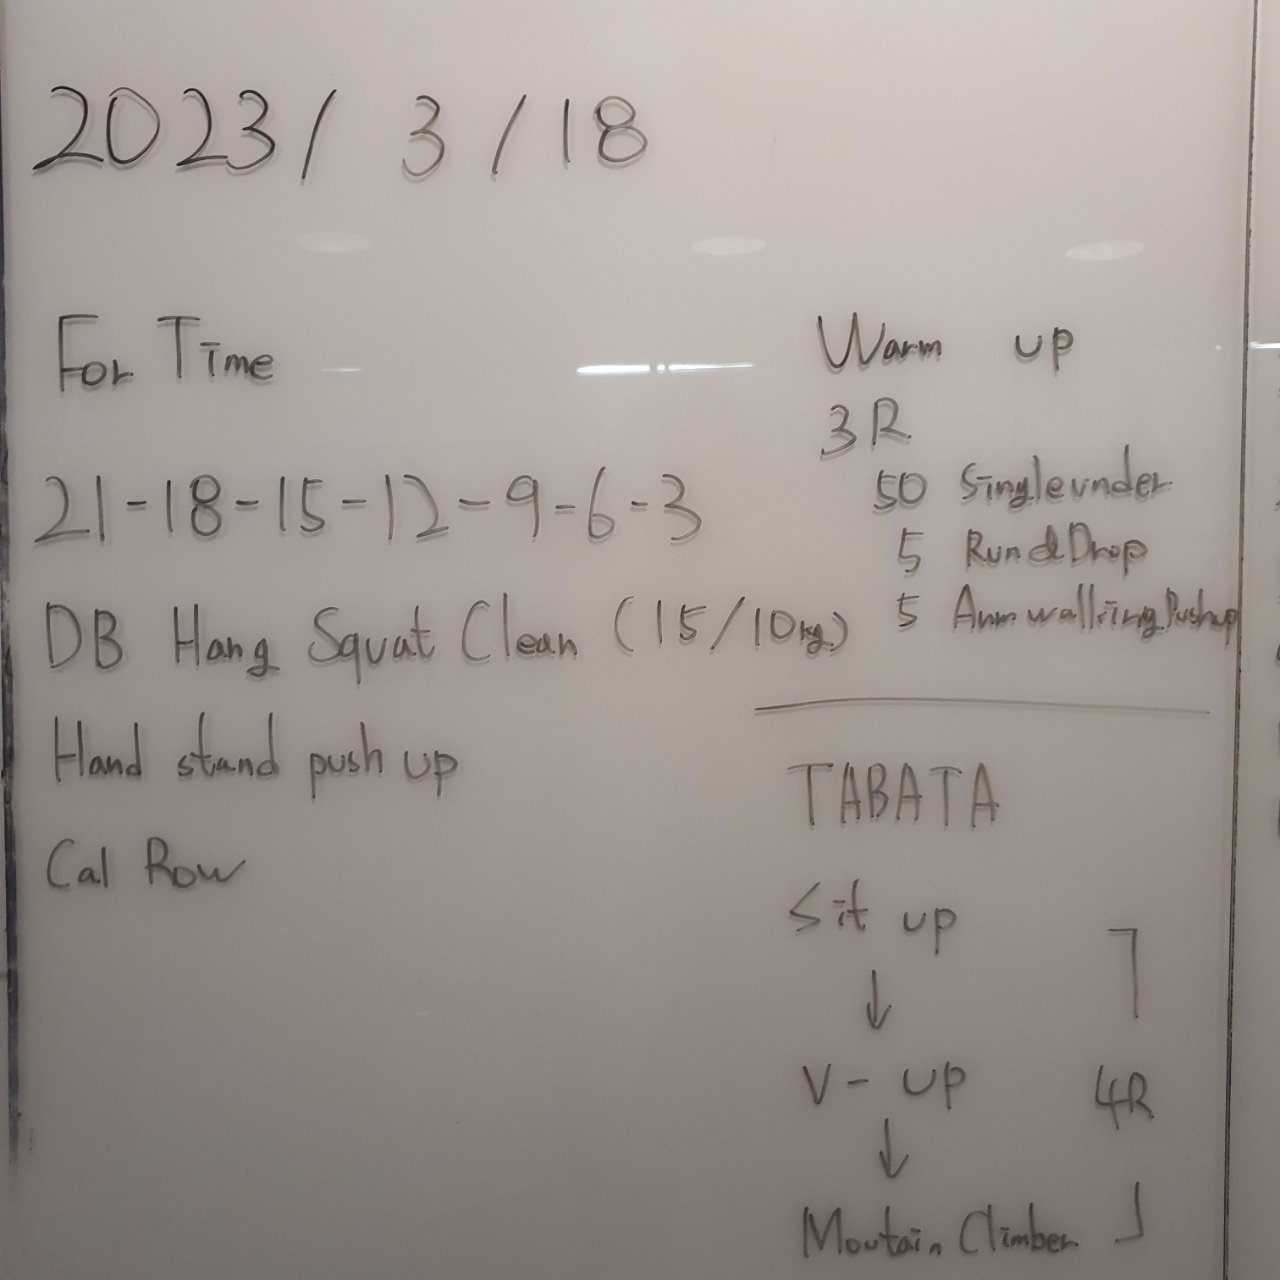 2023/ 3 /18
For Time
21-18-15-12-9-6-3
DB Hang Squat Clean (15/10kg)
Hand stand push up
Cal Row
Warm up
3R
50 Singleunder
5 Run&Drop
5 Arm walking Pushup
TABATA
Sit up
↓
V- up
↓
Moutain Climber
4R